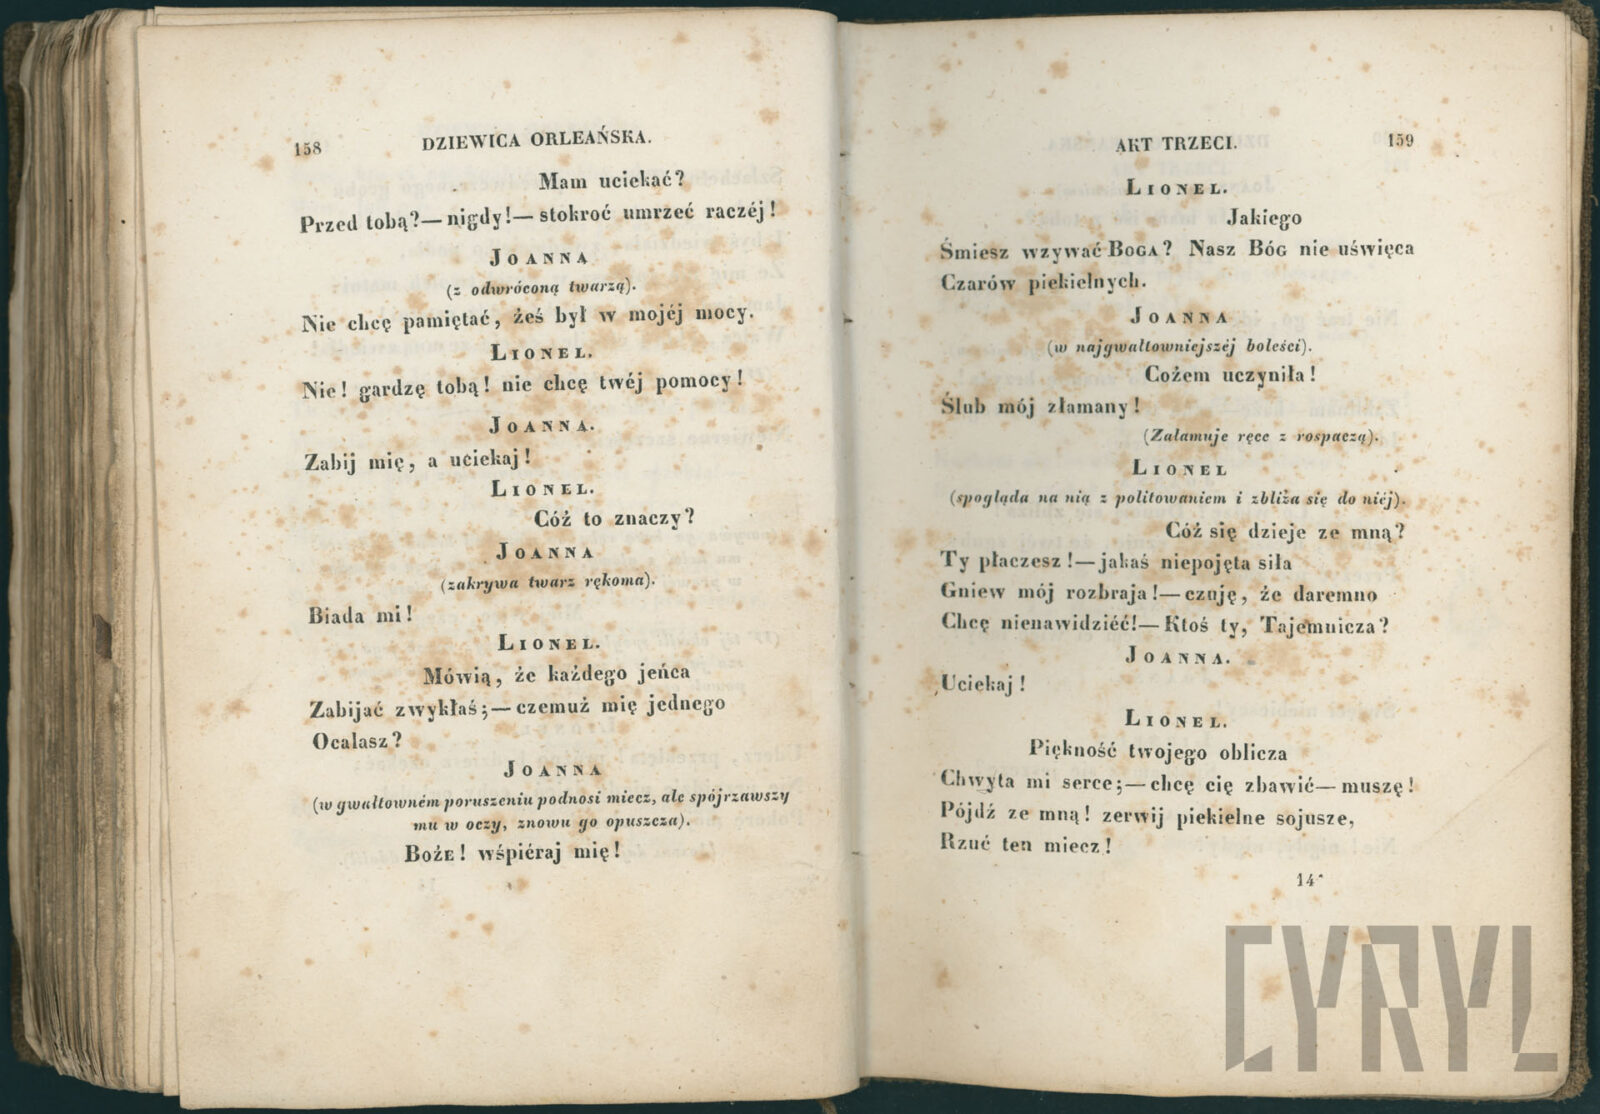 158 DZIEWICA ORLEAŃSKA.
Mam uciekać?
Przed tobą?— nigdy!— stokroć umrzeć raczéj!
JOANNA
(z odwróconą twarzą).
Nie chcę pamiętać, żeś był w mojéj mocy.
LIONEL.
Nie! gardzę tobą! nie chcę twéj pomocy!
JOANNA.
Zabij mię, a uciekaj!
LIONEL.
Cóż to znaczy?
JOANNA
(zakrywa twarz rękoma).
Biada mi!
LIONEL.
Mówią, że każdego jeńca
Zabijać zwykłaś;— czemuż mię jednego
Ocalasz?
JOANNA
(w gwałtowném poruszeniu podnosi miecz, ale spójrzawszy
mu w oczy, znowu go opuszcza).
BOŻE! wśpiéraj mię!
AKT TRZECI. 159
LIONEL.
Jakiego
Śmiesz wzywać BOGA? Nasz BÓG nie uświęca
Czarów piekielnych.
JOANNA
(w najgwałtowniejszéj boleści).
Cożem uczyniła!
Ślub mój złamany!
(Załamuje ręce z rospaczą).
LIONEL
(spogląda na nią z politowaniem i zbliża się do niéj).
Cóż się dzieje ze mną?
Ty płaczesz!— jakaś niepojęta siła
Gniew mój rozbraja!— czuję, że daremno
Chcę nienawidziéć!— Ktoś ty, Tajemnicza?
JOANNA.
Uciekaj!
LIONEL.
Piękność twojego oblicza
Chwyta mi serce;— chcę cię zbawić— muszę!
Pójdź ze mną! zerwij piekielne sojusze,
Rzuć ten miecz!
14*
CYRYL